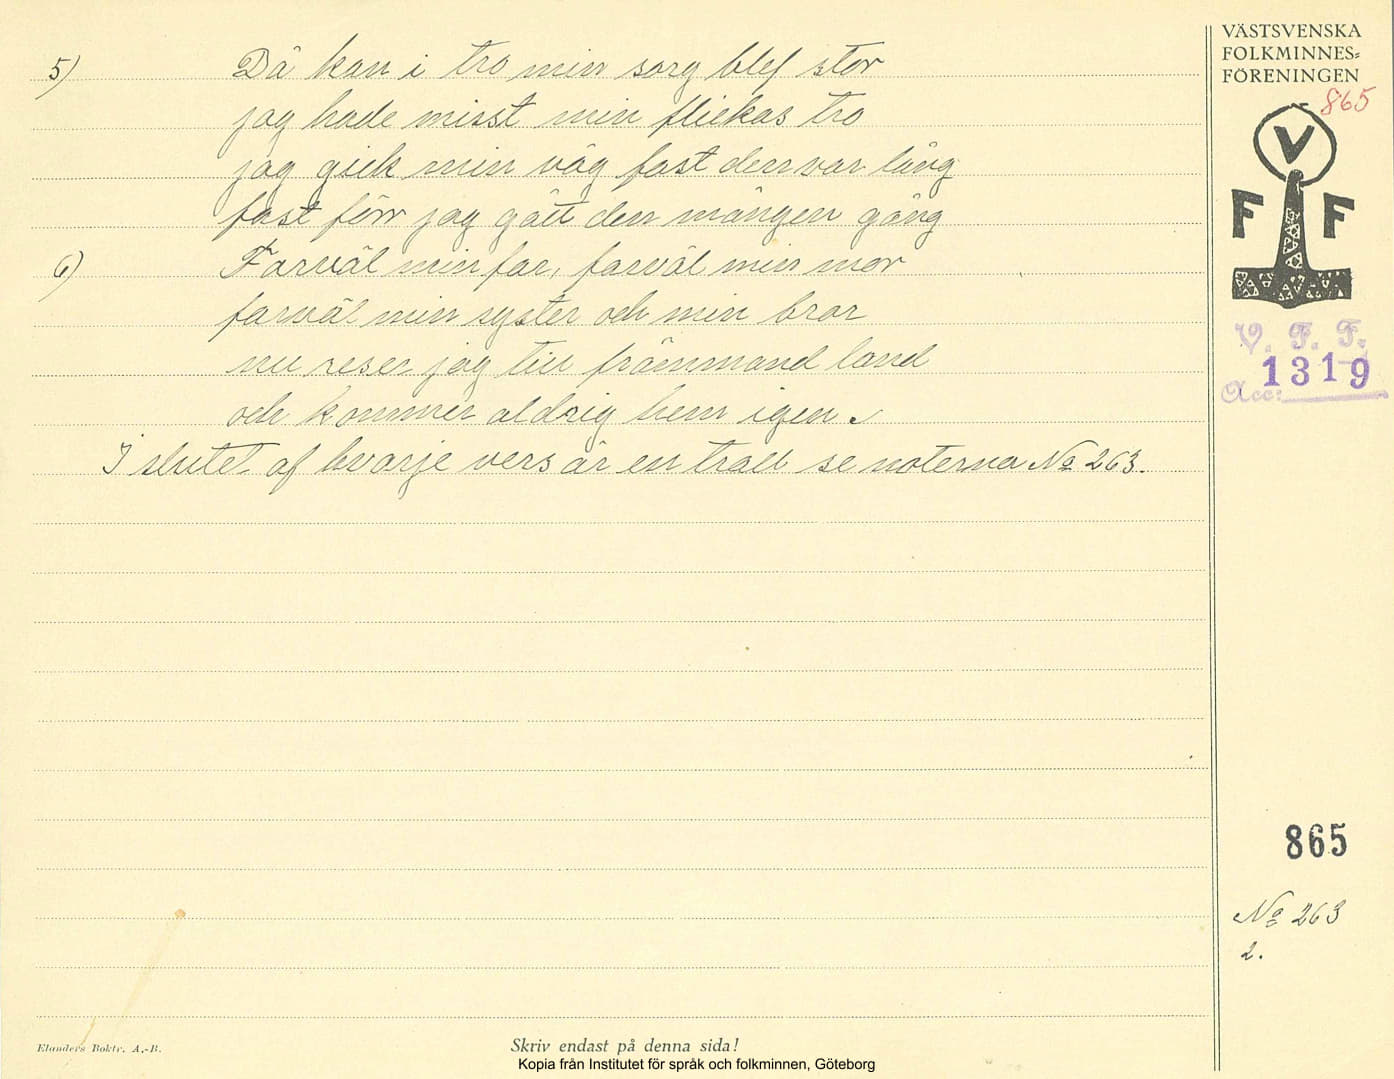 VÄSTSVENSKA
FOLKMINNES=
FÖRENINGEN
865
V
F F
V. F. F.
1319
Acc:
5) Då kan i tro min sorg blef stor
jag hade misst min flickas tro
jag gick min väg fast den var lång
fast förr jag gått den mången gång
6) Farväl min far, farväl min mor
farväl min syster och min bror
nu reser jag till främmand land
och kommer aldrig hem igen.
I slutet af hvarje vers är en trall se noterna No 263.
865
No 263
2.
Elanders Boktr. A.-B.
Skriv endast på denna sida!
Kopia från Institutet för språk och folkminnen, Göteborg